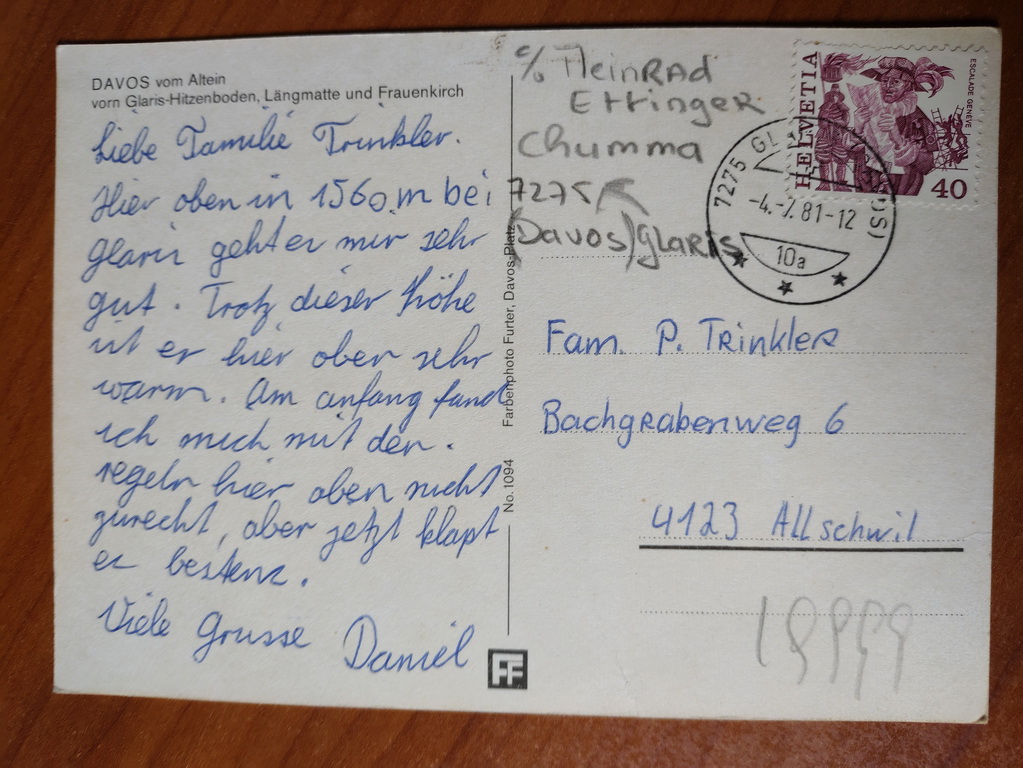 DAVOS vom Altein
vorn Glaris-Hitzenboden, Längmatte und Frauenkirch
Liebe Familie Trinkler.
Hier oben in 1560 m bei
Glaris geht es mir sehr
gut. Trotz dieser Höhe
ist es hier ober sehr
warm. Am anfang fand
ich mich mit den.
regeln hier oben nicht
zurecht, aber jetzt klapt
es bestens.
Viele Grüsse Daniel
Farbenphoto Furter, Davos-Platz
No. 1094
FF
c/o MeinRAd
Ettinger
Chumma
7275
(Davos)GLARIS
HELVETIA
ESCALADE GENÈVE
40
7275 GL
OS)
-4.-7.81-12
10a
Fam. P. Trinkler
Bachgrabenweg 6
4123 Allschwil